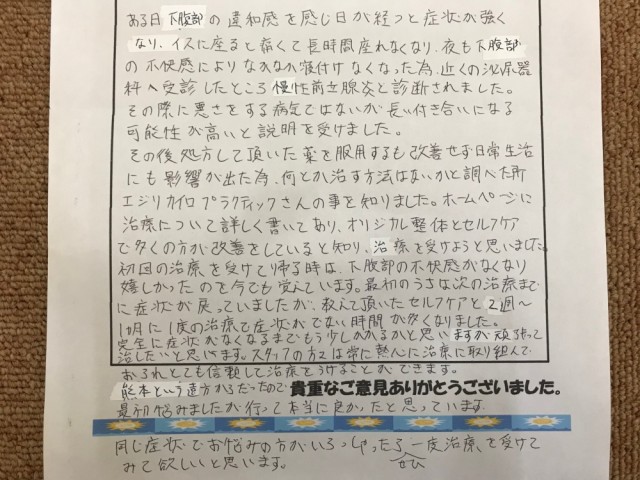 ある日下腹部の違和感を感じ日が経つと症状が強く
なり、イスに座ると痛くて長時間座れなくなり、夜も下腹部
の不快感によりなかなか寝付けなくなった為、近くの泌尿器
科へ受診したところ慢性前立腺炎と診断されました。
その際に悪さをする病気ではないが長い付き合いになる
可能性が高いと説明を受けました。
その後処方して頂いた薬を服用するも改善せず日常生活
にも影響が出た為、何とか治す方法はないかと調べた所
エジリカイロプラクティックさんの事を知りました。ホームページに
治療について詳しく書いてあり、オリジナル整体とセルフケア
で多くの方が改善をしていると知り、治療を受けようと思いました。
初回の治療を受けて帰る時は、下腹部の不快感がなくなり
嬉しかったのを今でも覚えています。最初のうちは次の治療まで
に症状が戻っていましたが、教えて頂いたセルフケアと2週〜
1カ月に1度の治療で症状がでない時間が多くなりました。
完全に症状がなくなるまでもう少しかかるかと思いますが頑張って
治したいと思います。スタッフの方々は常に熱心に治療に取り組んで
おられとても信頼して治療をうけることができます。
熊本という遠方からだったので
貴重なご意見ありがとうございました。
最初悩みましたが行って本当に良かったと思っています。
同じ症状でお悩みの方がいらっしゃったらぜひ一度治療を受けて
みて欲しいと思います。